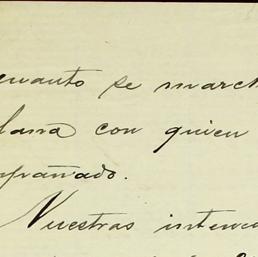 cuanto se march
lana con quien
mpañado.
Nuestras intenci